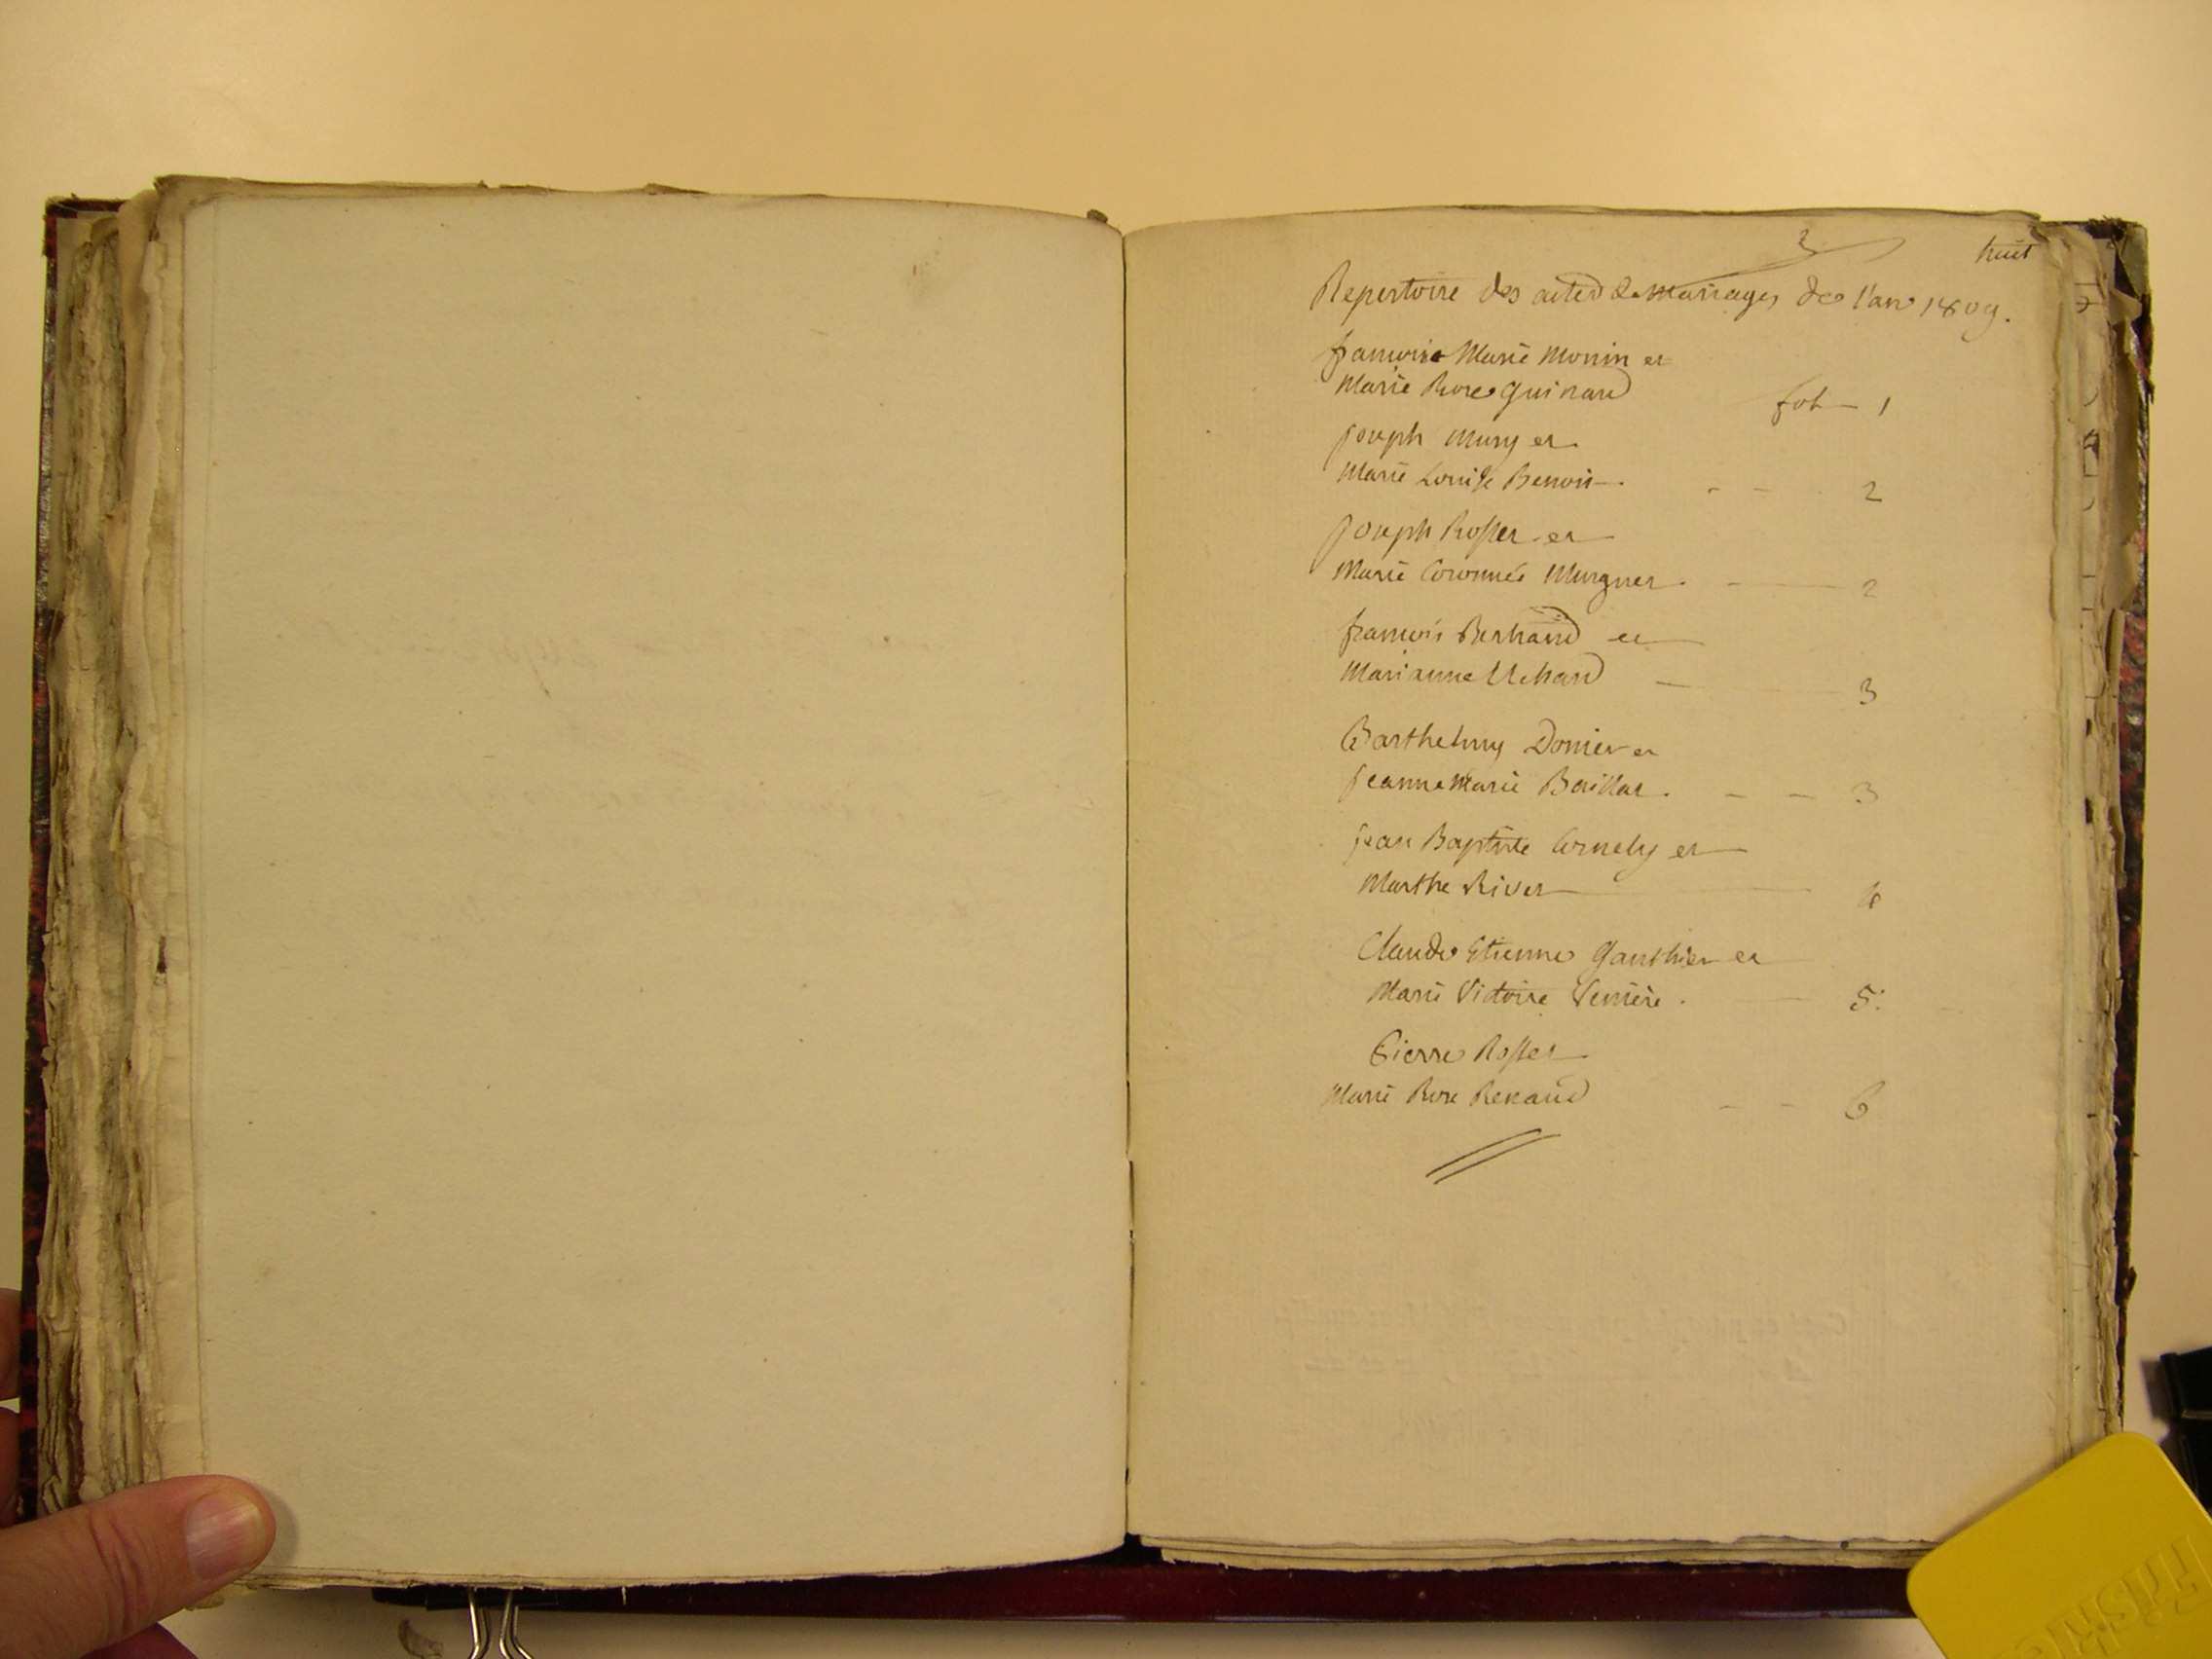 huit
Repertoire des actes de mariages de l'an 1809.
françois Marie Monin et
Marie Rose Guinard fol 1
Joseph Mury et
Marie Louise Benoit 2
Joseph Rosset et
Marie Murgner 2
françois Bertrand et
Marianne 3
Barthelmy Donier et
Jeanne Marie 3
Jean Baptiste Cornely et
Marthe River 4
Claude Etienne Gauthier et
Marie Victoire 5
Pierre Rosset
Marie Rose Renaud 6